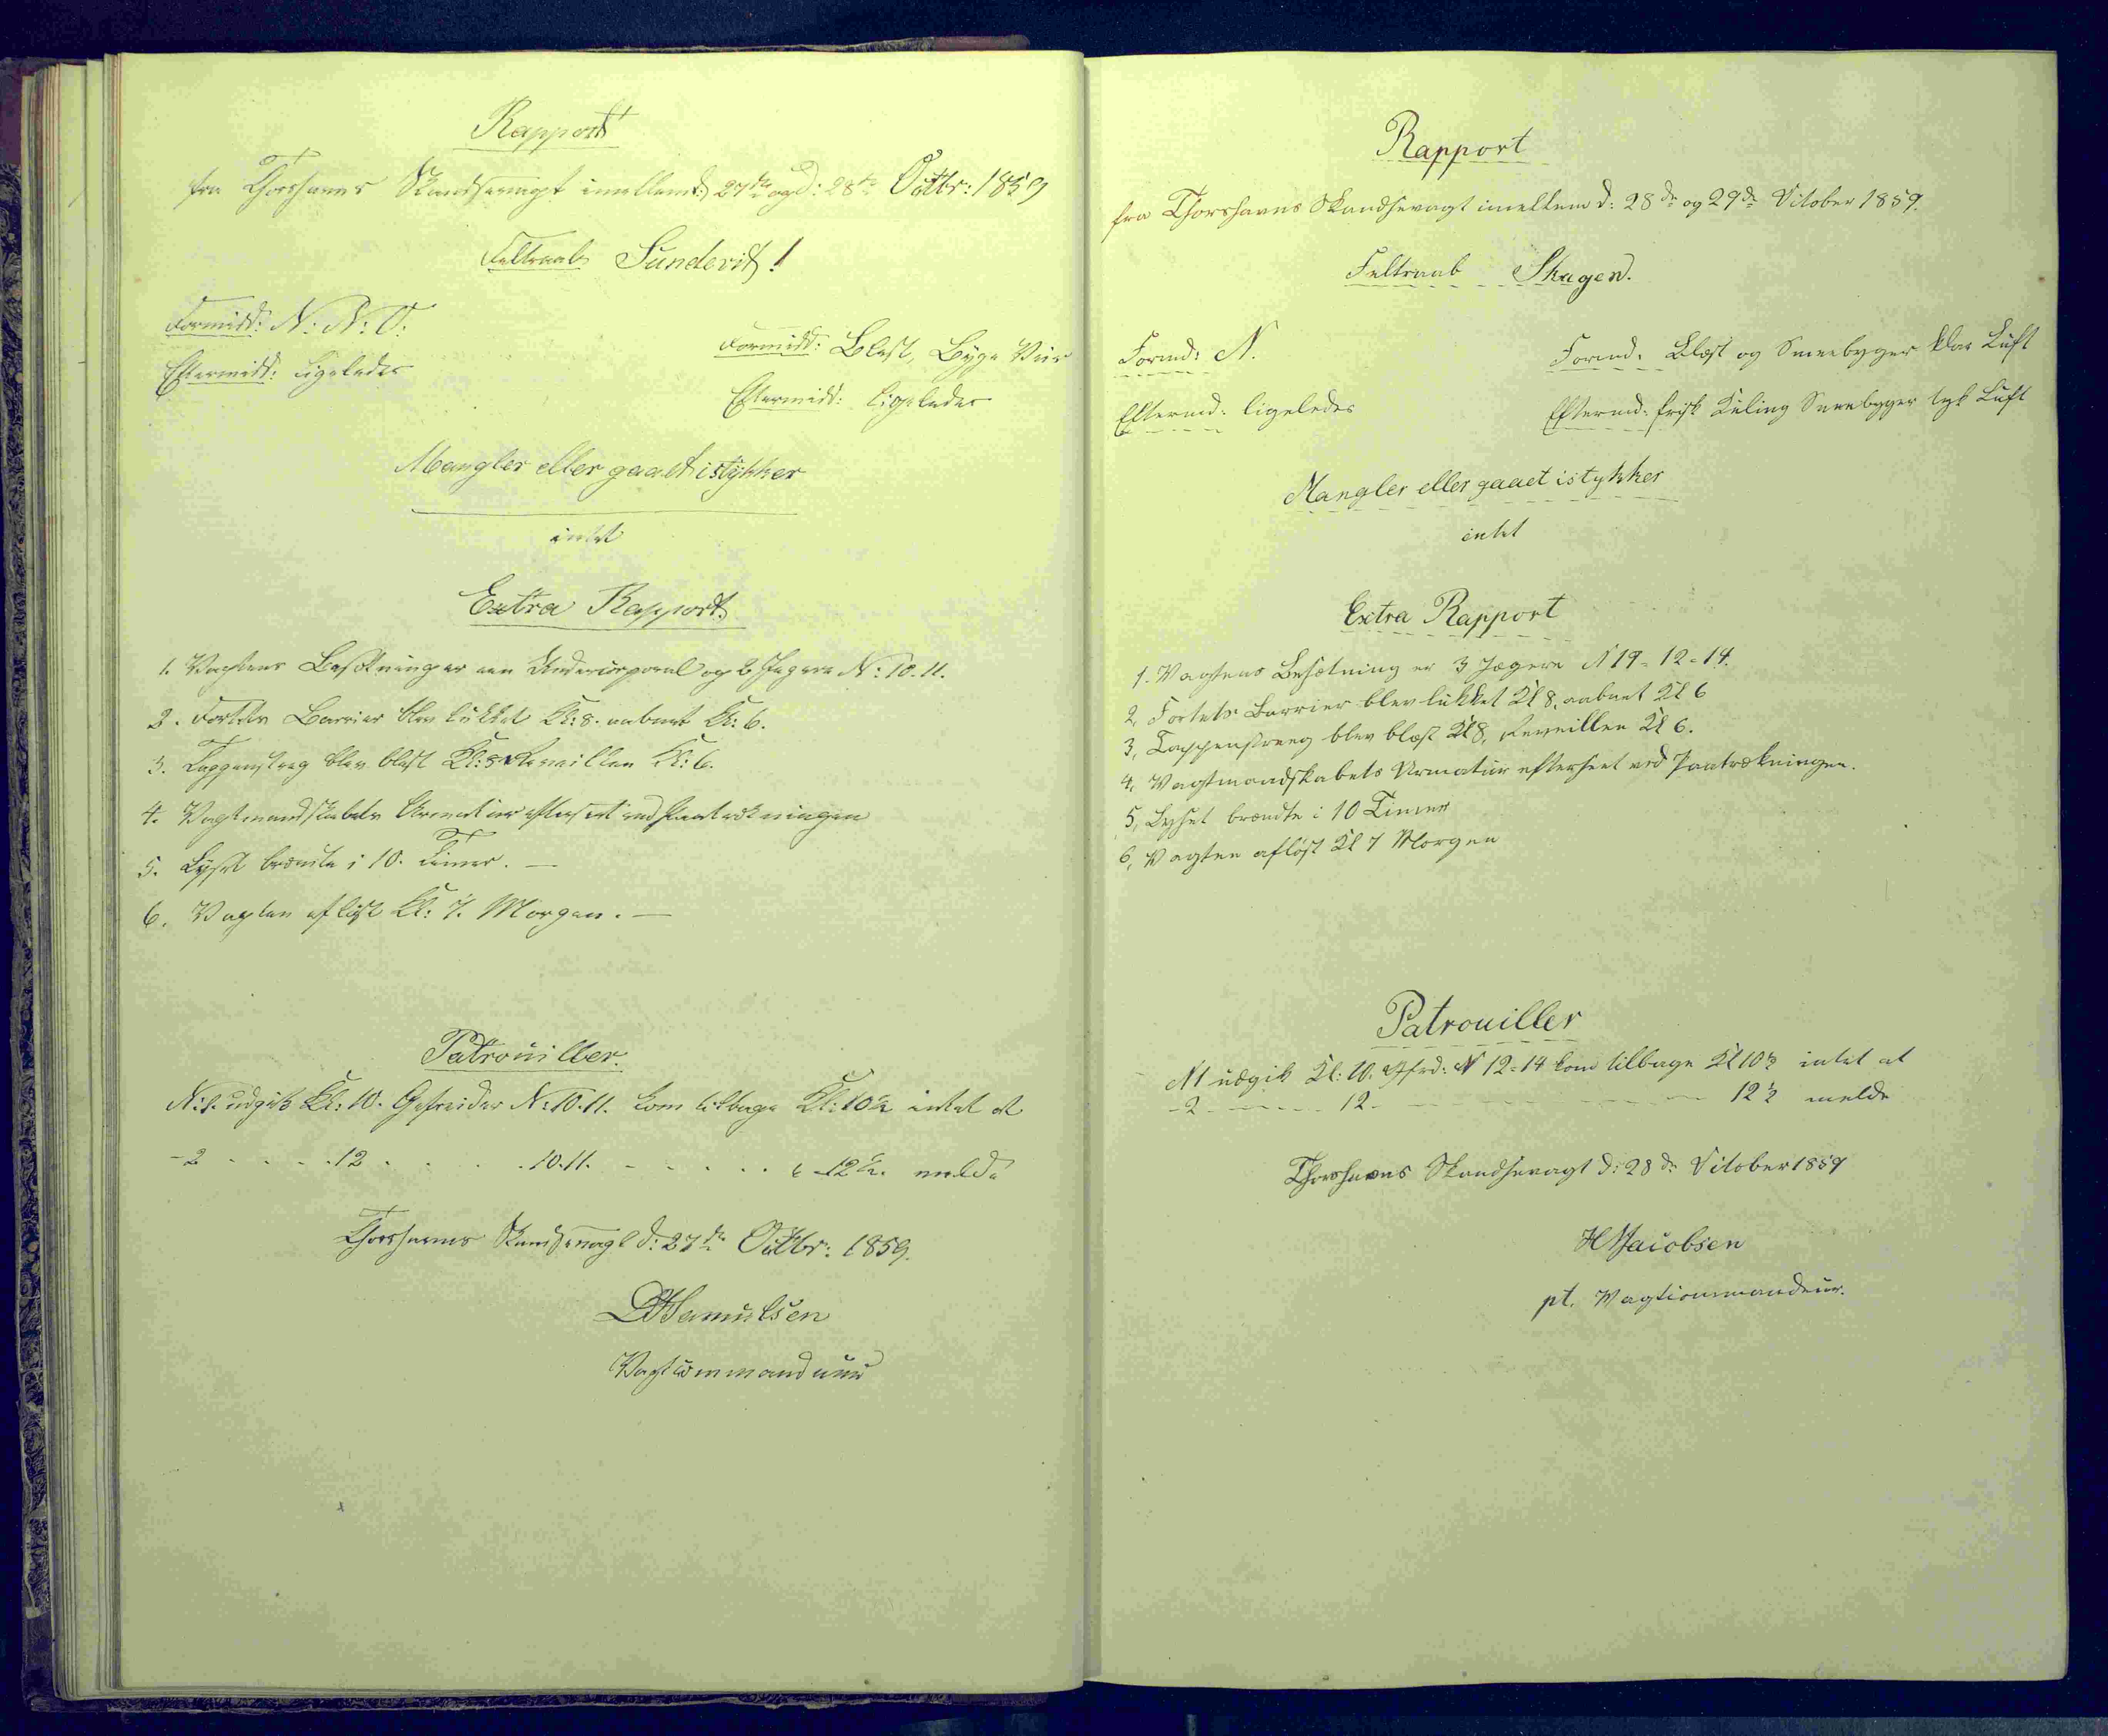 Rapport
fra Thorshavns Skandsevagt imellem d: 27de og d: 28de Octbr: 1859
Feltraab Sundevit!
Formidd: N: N: O:
Eftermidd: ligeledes
Formidd: Blæst, Byge Veir
Eftermidd: ligeledes
Mangler eller gaaet istykker
intet
Extra Rapport
1. Vagtens Besætning er een Undercorporal og 2 Jægere N: 10. 11.
2. Fortets Barrier blev lukket Kl: 8. aabnet Kl: 6.
3. Tappenstreg blev blæst Kl: 8 Reveillen Kl: 6.
4. Vagtmandskabets Armatur efterseet ved Paatrækningen
5. Lyset brændte i 10. Timer. —
6. Vagten afløst Kl: 7. Morgen. —
Patrouiller.
N: 1. udgik Kl: 10. Gefreider N: 10. 11. kom tilbage Kl: 10½ intet at
- 2 . . . . 12 . . . . 10. 11. - . . . . . 12½. melde
Thorshavns Skandsevagt d: 27de Octbr: 1859.
Samuelsen
Vagtcommandeur
Rapport
fra Thorshavns Skandsevagt imellem d: 28de og 29de October 1859.
Feltraab Skagen.
Formd: N.
Eftermd: ligeledes
Formd: Blæst og Sneebyger klar Luft
Eftermd: frisk Kuling Sneebyger tyk Luft
Mangler eller gaaet istykker
intet
Extra Rapport
1. Vagtens Besætning er 3 Jægere N 19 - 12 - 14.
2, Fortets Barrier blev lukket Kl 8, aabnet Kl 6
3, Tappenstreeg blev blæst Kl 8, Reveillen Kl 6.
4, Vagtmandskabets Armatur efterseet ved Paatrækningen.
5, Lyset brændte i 10 Timer
6, Vagten afløst Kl 7 Morgen
Patrouiller
N1 udgik Kl: 10. Gfrd: N 12-14 kom tilbage Kl 10½ intet at
- 2 - - - - - 12. - - - - - - - 12½ melde
Thorshavns Skandsevagt d: 28de October 1859
H Jacobsen
pt. Vagtcommandeur.